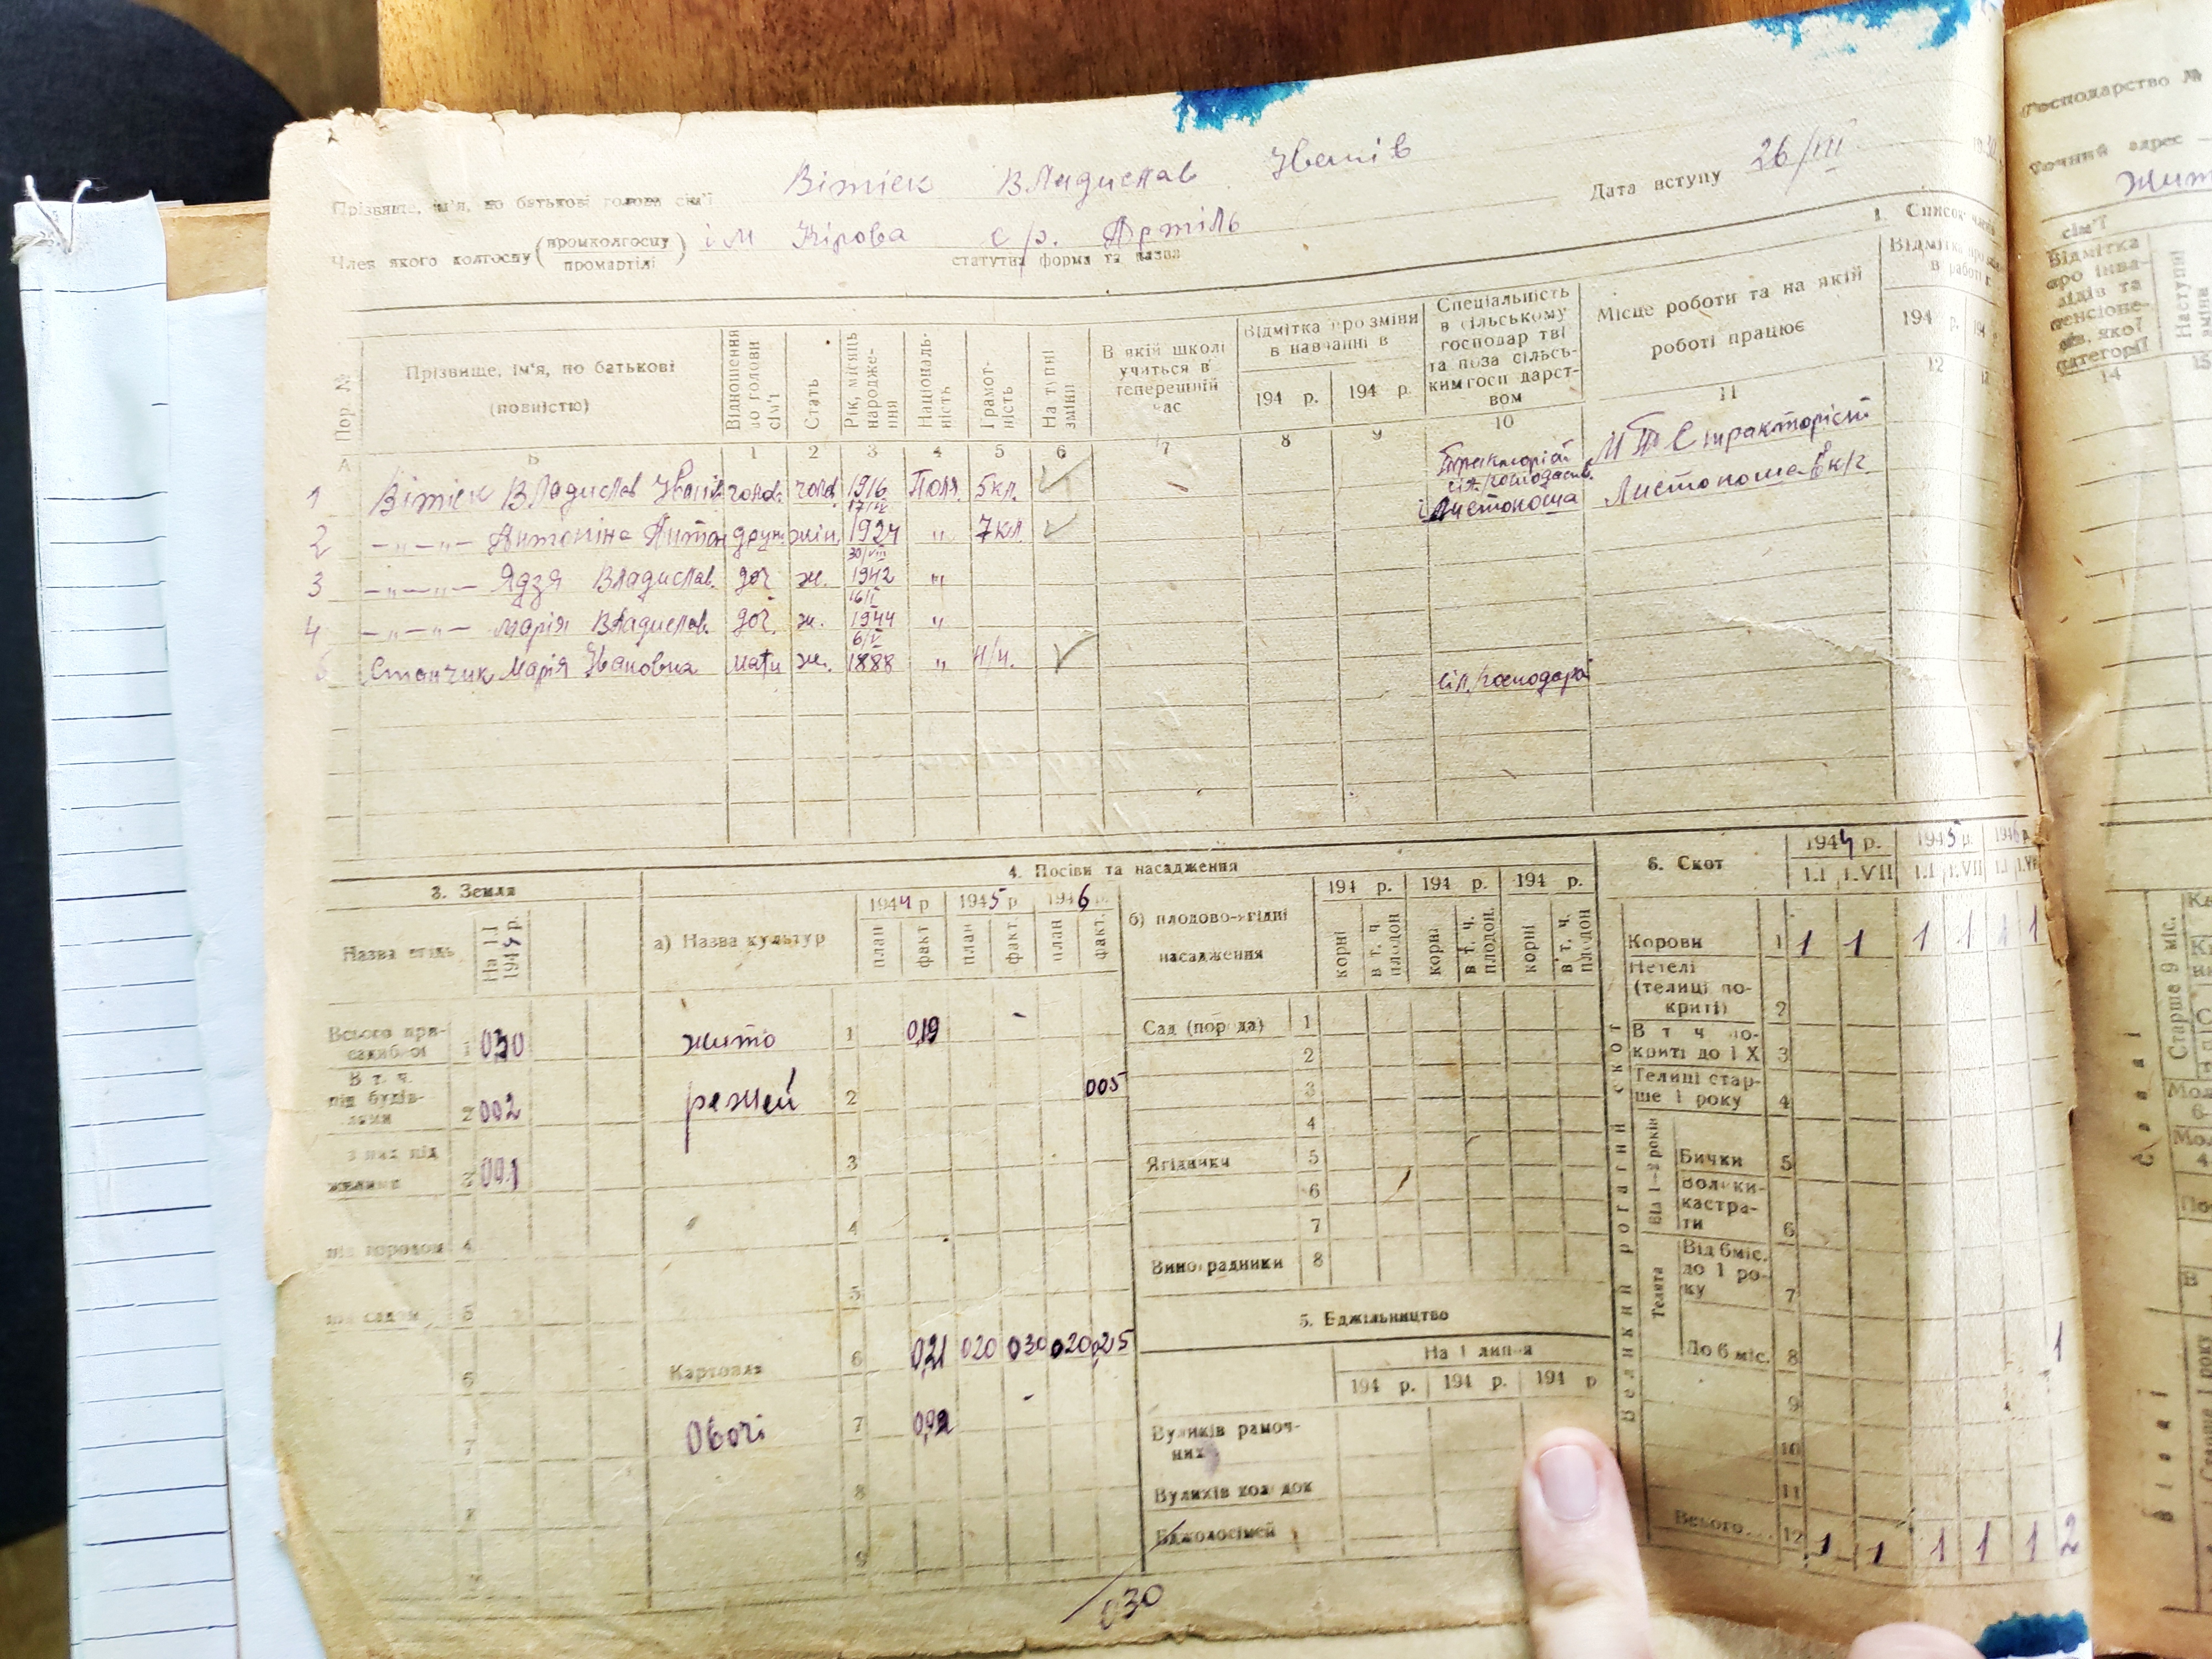 Вітіек Владислав Іванів
Прізвище, ім'я, по батькові голови сім'ї
Дата вступу 26/III
Член якого колгоспу (промколгоспу промартілі) ім Кірова с/р. Артіль
статутна форма та назва
1. Список членів
Пор. №
Прізвище, ім'я, по батькові (повністю)
Відношення до голови сім'ї
Стать
Рік, місяць народження
Національність
Грамотність
Наступні зміни
В якій школі учиться в теперешній час
Відмітка про зміни в навчанні в
194 р. 194 р.
Спеціальність в сільському господарстві та поза сільським господарством
Місце роботи та на якій роботі працює
194 р. 194
А Б 1 2 3 4 5 6 7 8 9 10 11 12
1 Вітіек Владислав Іванів голов. чолов. 1916 Поля. 5кл. тракторіст М Т С тракторіст
17/IV
2 —"—"— Антоніна Антон друж. жін. 1924 " 7кл. Листоноша Листоноша в к/г
30/VIII
3 —"—"— Ядзя Владислав. доч. ж. 1942 "
4 —"—"— Марія Владислав. доч. ж. 1944 "
6/V
5 Станчик Марія Івановна мати ж. 1888 " н/п. сіл./господар
3. Земля
Назва угідь
На 1.I 1945 р.
Всього присадибної 1 030
В т. ч. під будівлями 2 002
з них під жилими 3 001
під городом 4
під садом 5
6
7
8
4. Посіви та насадження
а) Назва культур
1944 р. 1945 р. 1946 р.
план факт план факт. план факт.
жито 1 019 -
режей 2 005
3
4
5
Картопля 6 021 020 030 020 025
Овочі 7 002 -
8
9
б) плодово-ягідні насадження
194 р. 194 р. 194 р.
корні в т. ч. плодон. корні в т. ч. плодон. корні в т. ч. плодон
Сад (порода) 1
2
3
4
Ягідники 5
6
7
Виноградники 8
5. Бджільництво
На 1 липня
194 р. 194 р. 194 р
Вуликів рамочних
Вуликів колодок
Бджолосімей
030
6. Скот
1944 р. 1945 р. 1946 р.
1.I 1.VII 1.I 1.VII 1.I 1.VII
Великий рогатий скот
Корови 1 1 1 1 1 1 1
Нетелі (телиці покриті) 2
В т ч покриті до 1 X 3
Телиці старше 1 року 4
Від 1—2 років
Бички 5
Волики-кастрати 6
Телята
Від 6 міс. до 1 року 7
До 6 міс. 8 1
9
10
11
Всього... 12 1 1 1 1 1 2
Господарство №
Точний адрес
сім'ї
Відмітка про інвалідів та пенсіонерів, якої категорії
14
15
Старше 9 міс.